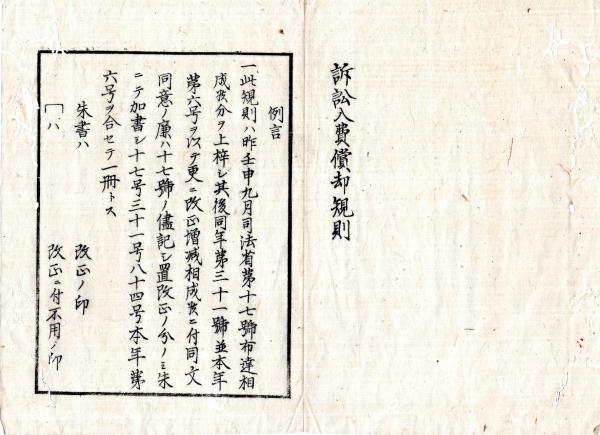 訴訟入費償却規則
例言
一此規則ハ昨壬申九月司法省第十七號布達相
成候分ヲ上梓シ其後同年第三十一號並本年
第六号ヲ以テ更ニ改正増減相成候ニ付同文
同意ノ廉ハ十七號ノ儘記シ置改正ノ分ノミ朱
ニテ加書シ十七号三十一号八十四号本年第
六号ヲ合セテ一冊トス
朱書ハ 改正ノ印
〔ハ 改正ニ付不用ノ印